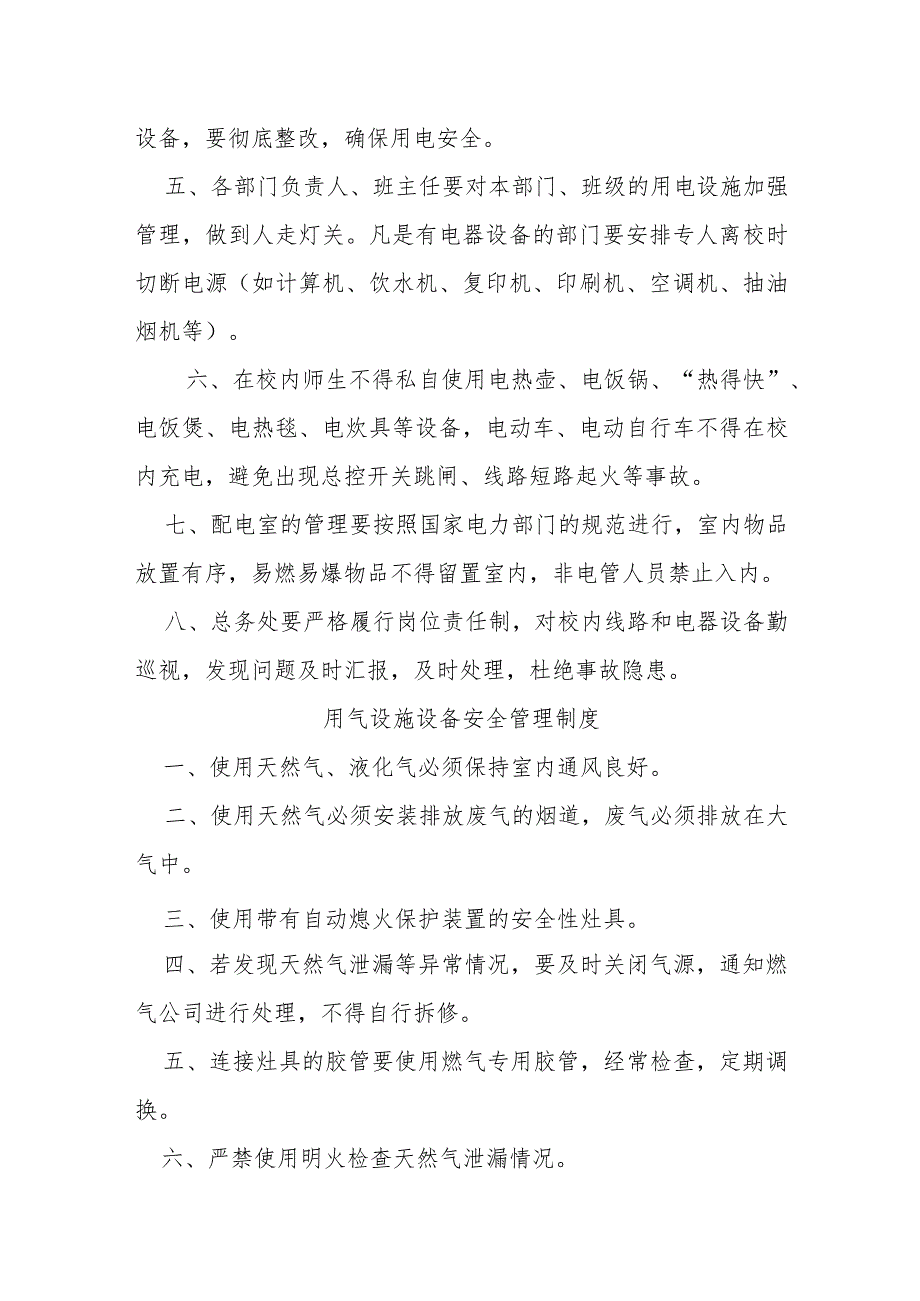 设备，要彻底整改，确保用电安全。
五、各部门负责人、班主任要对本部门、班级的用电设施加强
管理，做到人走灯关。凡是有电器设备的部门要安排专人离校时
切断电源（如计算机、饮水机、复印机、印刷机、空调机、抽油
烟机等）。
六、在校内师生不得私自使用电热壶、电饭锅、“热得快”、
电饭煲、电热毯、电炊具等设备，电动车、电动自行车不得在校
内充电，避免出现总控开关跳闸、线路短路起火等事故。
七、配电室的管理要按照国家电力部门的规范进行，室内物品
放置有序，易燃易爆物品不得留置室内，非电管人员禁止入内。
八、总务处要严格履行岗位责任制，对校内线路和电器设备勤
巡视，发现问题及时汇报，及时处理，杜绝事故隐患。
用气设施设备安全管理制度
一、使用天然气、液化气必须保持室内通风良好。
二、使用天然气必须安装排放废气的烟道，废气必须排放在大
气中。
三、使用带有自动熄火保护装置的安全性灶具。
四、若发现天然气泄漏等异常情况，要及时关闭气源，通知燃
气公司进行处理，不得自行拆修。
五、连接灶具的胶管要使用燃气专用胶管，经常检查，定期调
换。
六、严禁使用明火检查天然气泄漏情况。